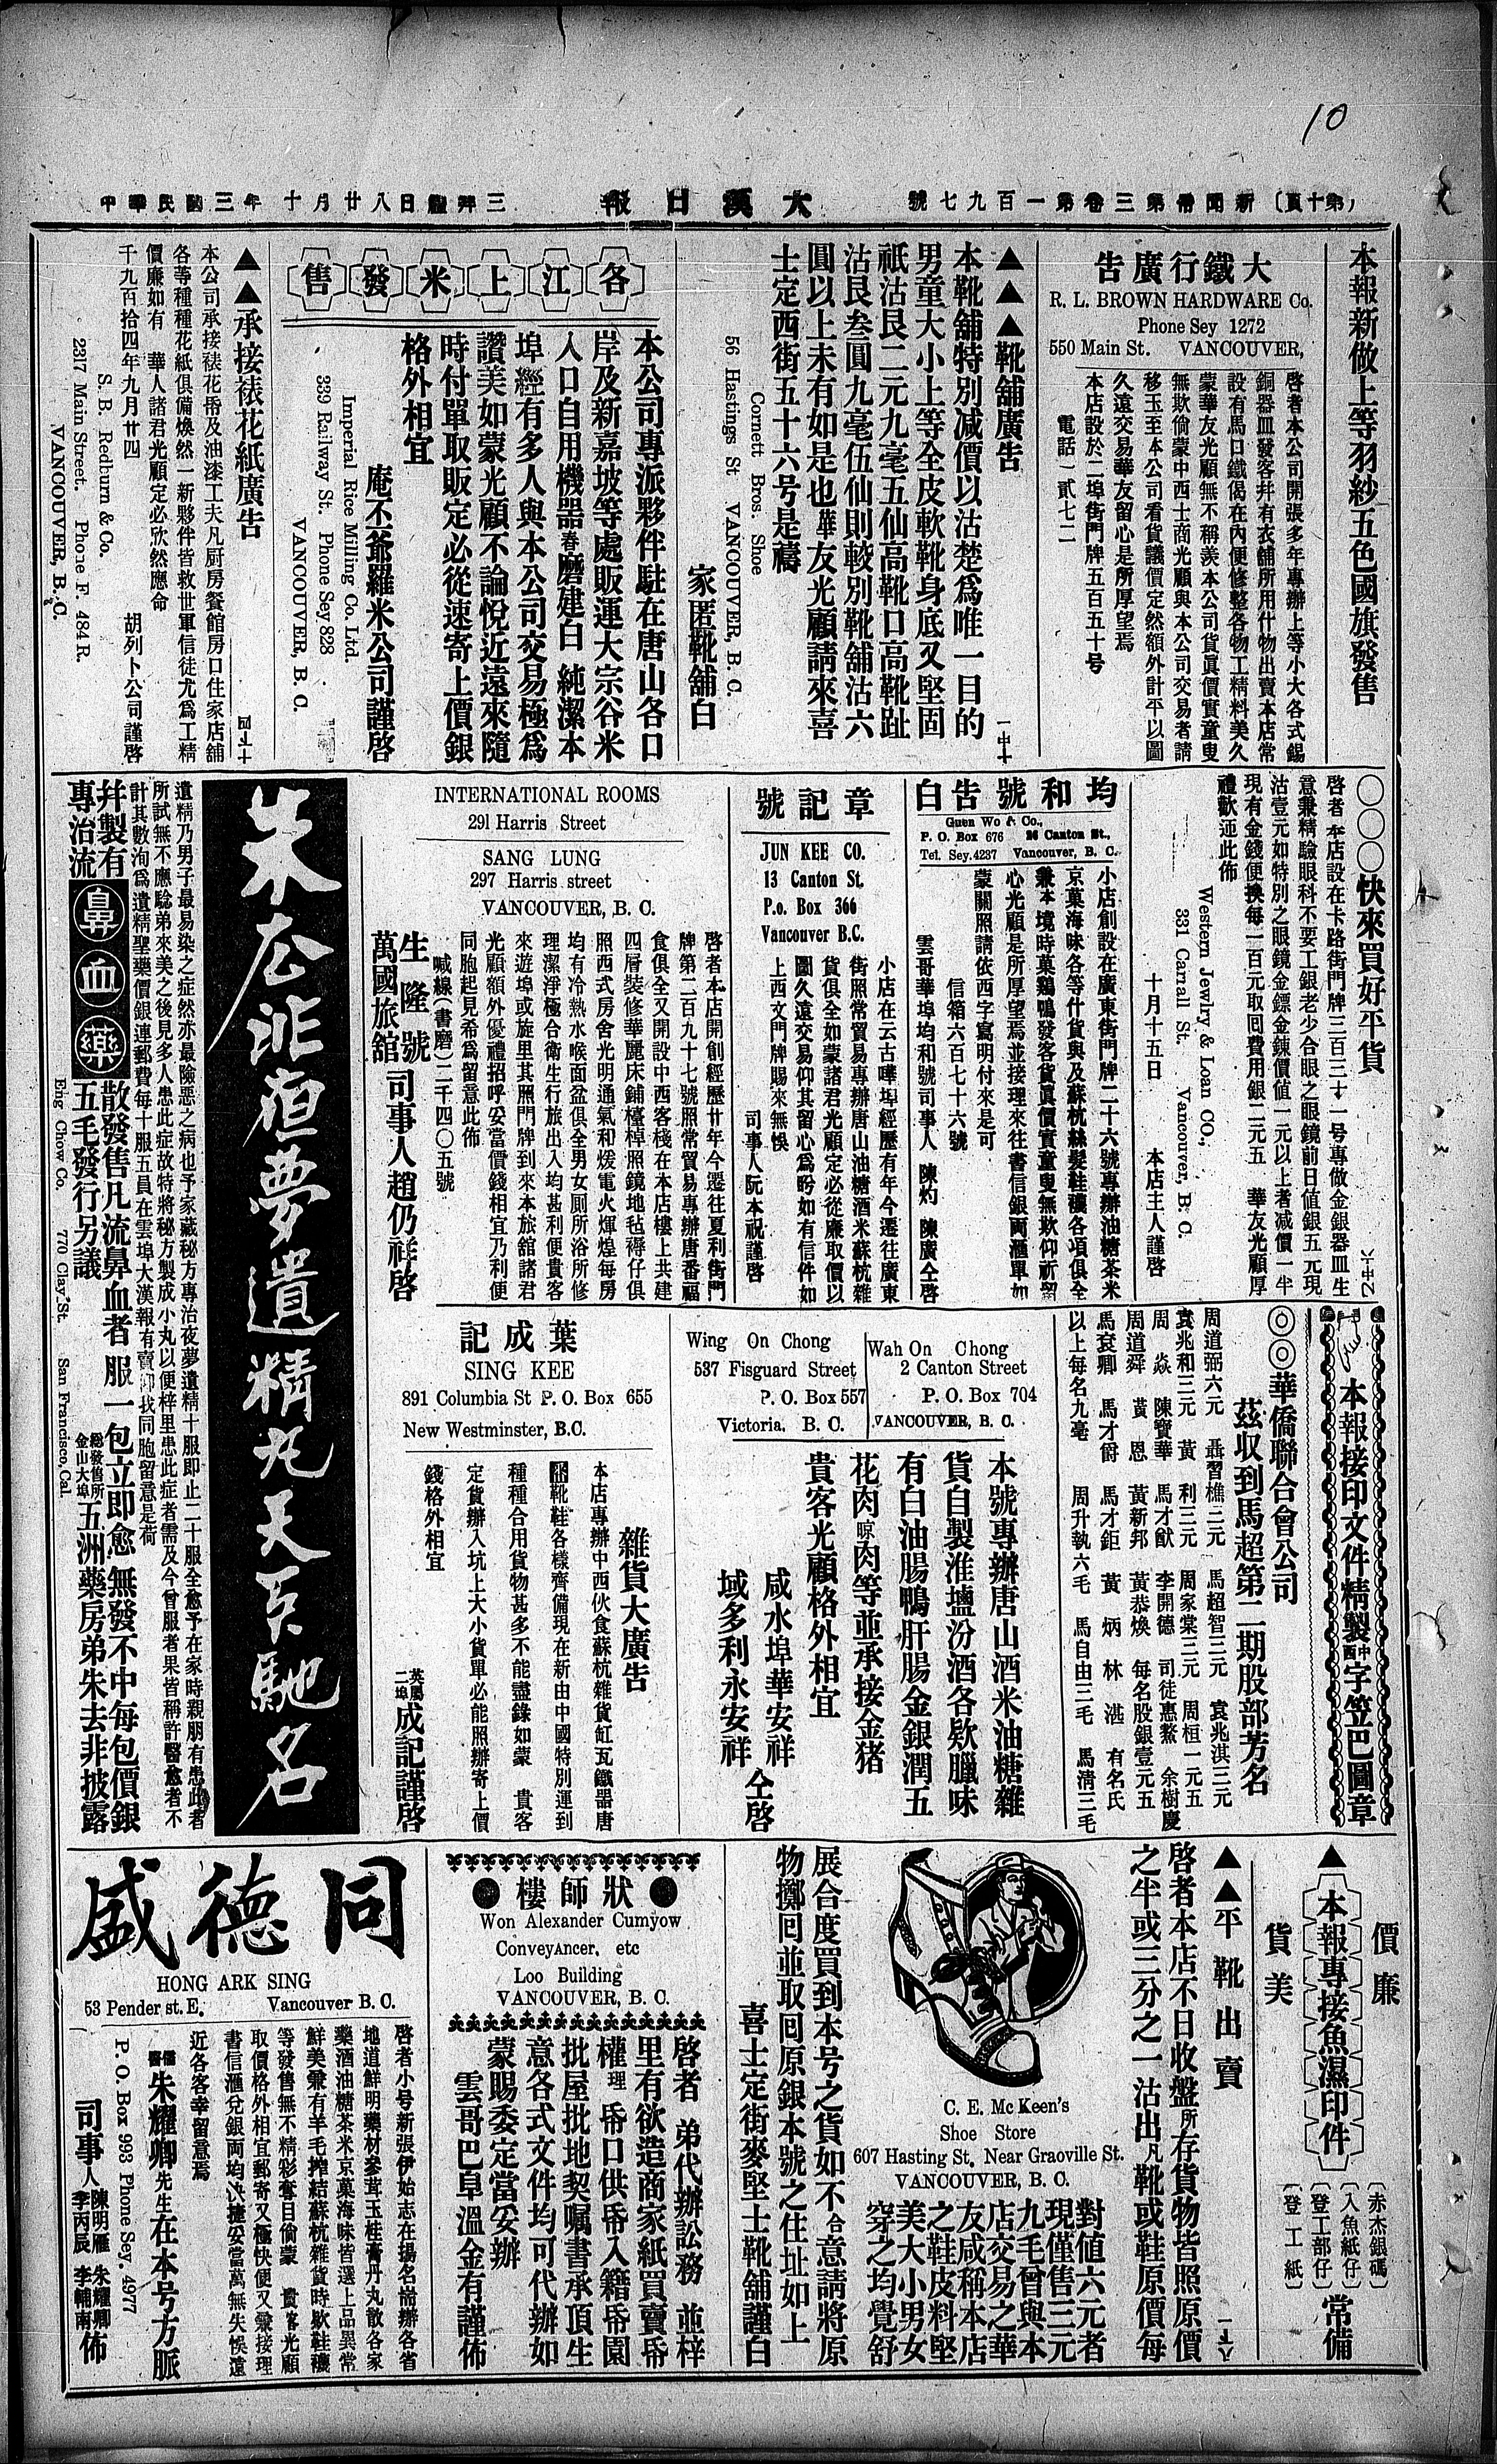 10
（第十頁） 新聞冊第三卷第一百九七號 大漢日報 三拜禮日八廿月十年三國民華中
本報新做上等羽紗五色國旗發售
大鐵行廣告
R. L. BROWN HARDWARE Co.
Phone Sey 1272
550 Main St. VANCOUVER,
啓者本公司開張多年專辦上等小大各式錫
銅器皿發客幷有衣舖所用什物出賣本店常
設有馬口鐵偈在內便修整各物工精料美久
蒙華友光顧無不稱羨本公司貨眞價實童叟
無欺倘蒙中西士商光顧與本公司交易者請
移玉至本公司看貨議價定然額外計平以圖
久遠交易華友留心是所厚望焉
本店設於二埠街門牌五百五十号
電話一貳七二
▲▲▲靴舖廣告
本靴舖特別減價以沽楚爲唯一目的
男童大小上等全皮軟靴身底又堅固
祇沽艮二元九毫五仙高靴口高靴趾
沽艮叁圓九毫伍仙則較別靴舖沽六
圓以上未有如是也華友光顧請來喜
士定西街五十六号是禱
Cornett Bros. Shoe
56 Hastings St VANCOUVER, B. C.
家匿靴舖白
各江上米發售
本公司專派夥伴駐在唐山各口
岸及新嘉坡等處販運大宗谷米
入口自用機器舂磨建白 純潔本
埠經有多人與本公司交易極爲
讚美如蒙光顧不論悅近遠來隨
時付單取販定必從速寄上價銀
格外相宜
庵不爺羅米公司謹啓
Imperial Rice Milling Co. Ltd.
339 Railway St. Phone Sey 828
VANCOUVER, B. C.
▲▲承接裱花紙廣告
本公司承接裱花帋及油漆工夫凡厨房餐館房口住家店舖
各等種種花紙俱備煥然一新夥伴皆救世軍信徒尤爲工精
價廉如有 華人諸君光顧定必欣然應命
千九百拾四年九月廿四 胡列卜公司謹啓
S. B. Redburn & Co.
2317 Main Street. Phone F. 484 R.
VANCOUVER, B. C.
〇〇〇快來買好平貨
啓者本店設在卡路街門牌三百三十一号專做金銀器皿生
意兼精驗眼科不要工銀老少合眼之眼鏡前日值銀五元現
沽壹元如特別之眼鏡金鏢金鍊價值一元以上者減價一半
現有金錢便換每一百元取囘費用銀二元五 華友光顧厚
禮歡迎此佈
Western Jewlry & Loan CO.,
331 Carrall St. Vancouver, B. C.
十月十五日 本店主人謹啓
均和號告白
Guen Wo & Co.,
P. O. Box 676 26 Canton St.,
Tel. Sey. 4237 Vancouver, B. C.
小店創設在廣東街門牌二十六號專辦油糖茶米
京菓海味各等什貨與及蘇杭絲髮鞋襪各項俱全
兼本境時菓鷄鴨發客貨眞價實童叟無欺仰祈留
心光顧是所厚望焉並接理來往書信銀両滙單如
蒙關照請依西字寫明付來是可
信箱六百七十六號
雲哥華埠均和號司事人 陳灼 陳廣仝啓
章記號
JUN KEE CO.
13 Canton St.
P.o. Box 366
Vancouver B.C.
小店在云古嘩埠經歷有年今遷往廣東
街照常貿易專辦唐山油糖酒米蘇杭雜
貨俱全如蒙諸君光顧定必從廉取價以
圖久遠交易仰其留心爲盼如有信件如
上西文門牌賜來無悞
司事人阮本祝謹啓
INTERNATIONAL ROOMS
291 Harris Street
SANG LUNG
297 Harris street
VANCOUVER, B. C.
啓者本店開創經歷廿年今遷往夏利街門
牌第二百九十七號照常貿易專辦唐番福
食俱全又開設中西客棧在本店樓上共建
四層裝修華麗床鋪檯棹照鏡地毡褥仔俱
照西式房舍光明通氣和煖電火煇煌每房
均有冷熱水喉面盆俱全男女厠所浴所修
理潔淨極合衛生行旅出入均甚利便貴客
來遊埠或旋里其照門牌到來本旅舘諸君
光顧額外優禮招呼妥當價錢相宜乃利便
同胞起見希爲留意此佈
喊線（書磨）二千四〇五號
生隆號
萬國旅舘
司事人趙仍祥啓
朱広非洹夢遺精丸天下馳名
遺精乃男子最易染之症然亦最險惡之病也予家藏秘方專治夜夢遺精十服即止二十服全愈予在家時親朋有患此者
所試無不應騐弟來美之後見多人患此症故特將秘方製成小丸以便梓里患此症者需及今曾服者果皆稱許醫愈者不
計其數洵爲遺精聖藥價銀連郵費每十服五員在雲埠大漢報有賣仰我同胞留意是荷
幷製有
專治流
鼻血藥
散發售凡流鼻血者服一包立即愈無發不中每包價銀
五毛發行另議
總發售所
金山大埠
五洲藥房弟朱去非披露
Eng Chow Co. 770 Clay St. San Francisco, Cal.
本報接印文件精製中西字笠巴圖章
◎◎華僑聯合會公司
茲収到馬超第二期股部芳名
周道弼六元 聶習樵三元 馬超智三元 袁兆淇三元
袁兆和三元 黃 利三元 周家棠三元 周桓一元五
周 焱 陳寶華 馬才猷 李開德 司徒惠鰲 余樹慶
周道舜 黃 恩 黃新邦 黃恭煥 每名股銀壹元五
馬袞卿 馬才爵 馬才鉅 黃 炳 林 湛 有名氏
以上每名九毫 周升執六毛 馬自由三毛 馬淸三毛
Wah On Chong
2 Canton Street
P. O. Box 704
VANCOUVER, B. C.
Wing On Chong
537 Fisguard Street
P. O. Box 557
Victoria. B. C.
本號專辦唐山酒米油糖雜
貨自製淮塩汾酒各欵臘味
有白油腸鴨肝腸金銀潤五
花肉晾肉等並承接金猪
貴客光顧格外相宜
咸水埠華安祥
域多利永安祥
仝啓
葉成記
SING KEE
891 Columbia St P. O. Box 655
New Westminster, B.C.
雜貨大廣告
本店專辦中西伙食蘇杭雜貨缸瓦鐵器唐
靴鞋各樣齊備現在新由中國特別運到
種種合用貨物甚多不能盡錄如蒙 貴客
定貨辦入坑上大小貨單必能照辦寄上價
錢格外相宜
英屬
二埠
成記謹啓
價廉
▲本報專接魚濕印件
貨美
（赤杰銀碼）
（入魚紙仔）
（登工部仔）
（登工紙）
常備
▲▲平靴出賣
啓者本店不日收盤所存貨物皆照原價
之半或三分之一沽出凡靴或鞋原價每
C. E. Mc Keen's
Shoe Store
607 Hasting St, Near Graoville St.
VANCOUVER, B. C.
對值六元者
現僅售三元
九毛曾與本
店交易之華
友咸稱本店
之鞋皮料堅
美大小男女
穿之均覺舒
展合度買到本号之貨如不合意請將原
物擲囘並取囘原銀本號之住址如上
喜士定街麥堅士靴舖謹白
●狀師樓●
Won Alexander Cumyow
Conveyancer, etc
Loo Building
VANCOUVER, B. C.
啓者 弟代辦訟務 並梓
里有欲造商家紙買賣帋
權理帋口供帋入籍帋園
批屋批地契嘱書承頂生
意各式文件均可代辦如
蒙賜委定當妥辦
雲哥巴阜溫金有謹佈
同德盛
HONG ARK SING
53 Pender st. E. Vancouver B. C.
啓者小号新張伊始志在揚名耑辦各省
地道鮮明藥材參茸玉桂膏丹丸散各家
藥酒油糖茶米京菓海味皆選上品異常
鮮美兼有羊毛搾結蘇杭雜貨時欵鞋襪
等發售無不精彩奪目倘蒙 貴客光顧
取價格外相宜郵寄又極快便又兼接理
書信滙兌銀両均決捷妥當萬無失悞遠
近各客幸留意焉
儒醫朱耀卿先生在本号方脈
P. O. Box 993 Phone Sey. 4977
司事人陳明雁 朱耀卿
李丙辰 李輔南 佈